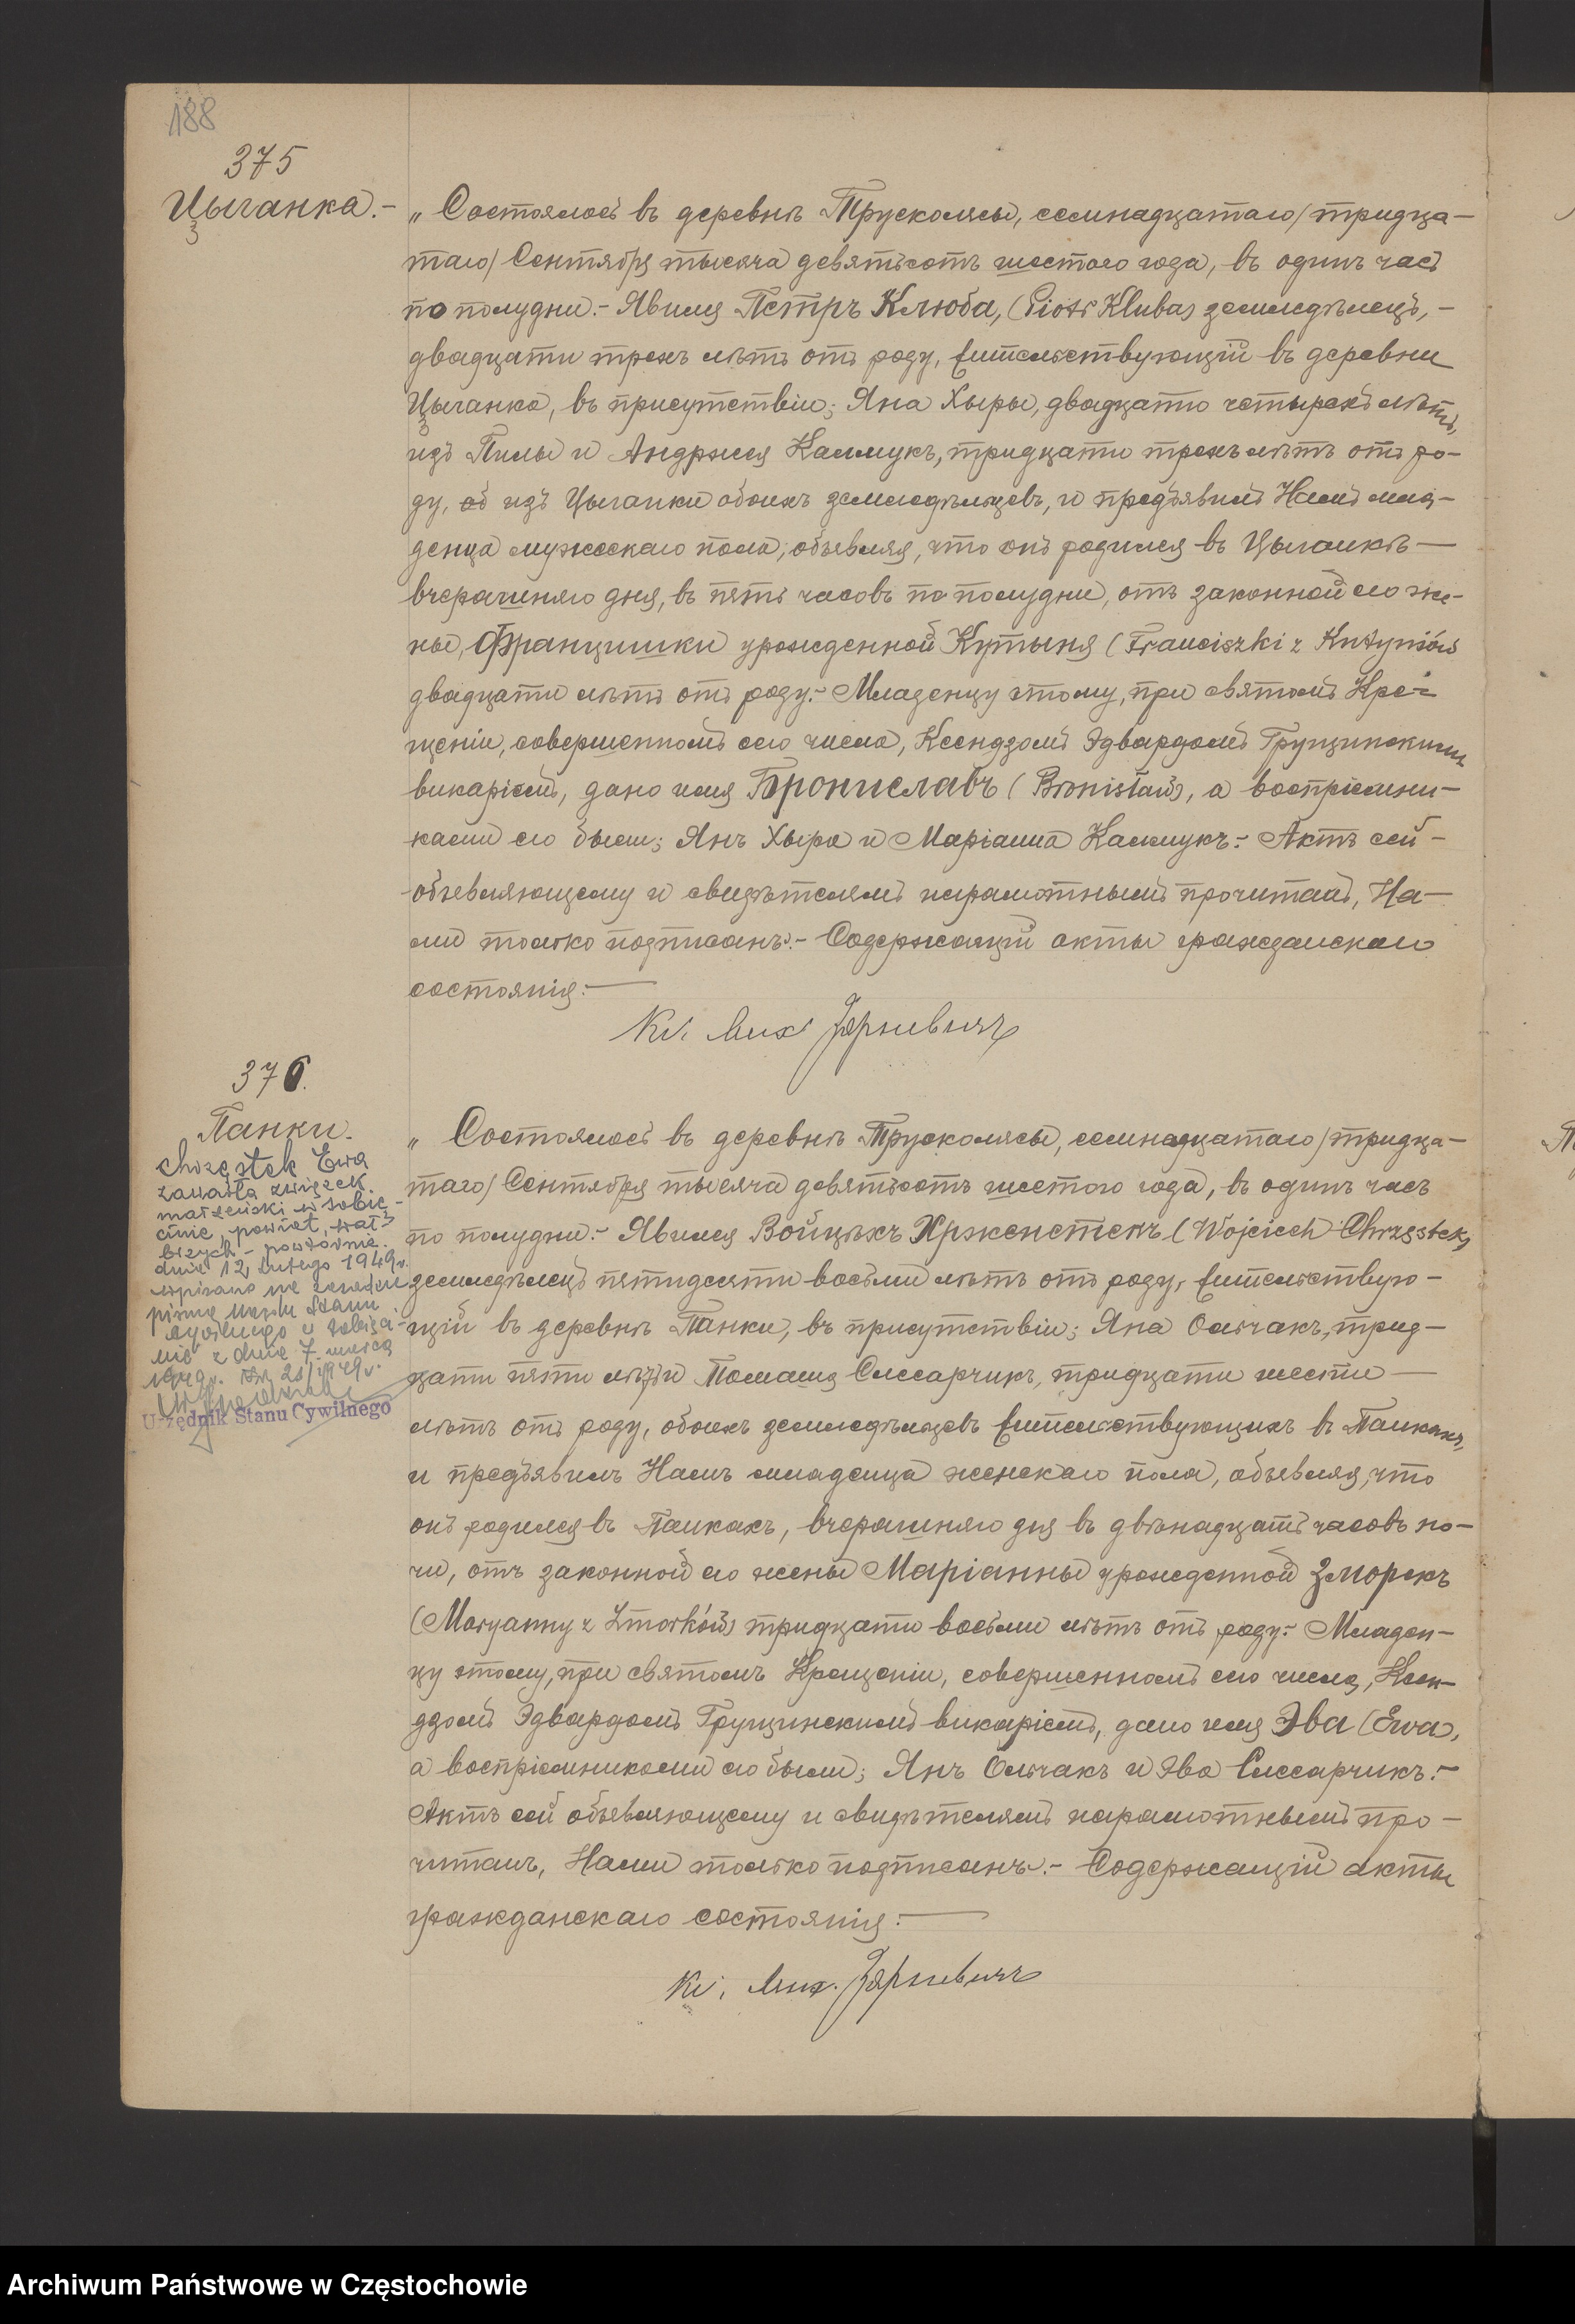 188
375
Цыганка.-
„ Состоялось въ деревнѣ Трусколясы, семнадцатаго /тридца-
таго/ Сентября тысяча девятьсотъ шестого года, въ одинъ часъ
по полудни.- Явился Петръ Клюба, (Piotr Kluba) земледѣлецъ,-
двадцати трехъ лѣтъ отъ роду, жительствующій въ деревни
Цыганка, въ присутствіи; Яна Хыры, двадцати четырехъ лѣтъ,
изъ Пилы и Андржея Калмукъ, тридцати трехъ лѣтъ отъ ро-
ду, изъ Цыганки обоихъ земледѣльцевъ, и предъявилъ Намъ мла-
денца мужескаго пола, объявляя, что онъ родился въ Цыганкѣ —
вчерашняго дня, въ пять часовъ по полудни, отъ законной его же-
ны, Францишки урожденной Кутыня (Franciszki z Kutyniów)
двадцати лѣтъ отъ роду.- Младенцу этому, при святомъ Кре-
щеніи, совершенномъ сего числа, Ксендзомъ Эдвардомъ Грущинскимъ
викаріемъ, дано имя Брониславъ (Bronisław), а воспріемни-
ками его были; Янъ Хыра и Маріанна Калмукъ.- Актъ сей -
объявляющему и свидѣтелямъ неграмотнымъ прочитанъ, На-
ми только подписанъ.- Содержащій акты гражданскаго
состоянія.-
Кс. Мих.
376.
Панки.
Chrząstek Ewa
zawarła związek
małżeński w Sobię-
cinie, powiat, wał-
brzych - powtórnie.
dnia 12 lutego 1949 r.
wpisano na zasadzie
pisma Urzędu Stanu
cywilnego w Sobięci-
nie z dnia 7 marca
1949 r.
Urzędnik Stanu Cywilnego
„ Состоялось въ деревнѣ Трусколясы, семнадцатаго /тридца-
таго/ Сентября тысяча девятьсотъ шестого года, въ одинъ часъ
по полудни.- Явился Войцѣхъ Хрженстекъ (Wojciech Chrząstek)
земледѣлецъ пятидесяти восьми лѣтъ отъ роду, жительствую-
щій въ деревнѣ Панки, въ присутствіи; Яна Ольчакъ, трид-
цати пяти лѣтъ и Томаша Слесарчикъ, тридцати шести —
лѣтъ отъ роду, обоихъ земледѣльцевъ жительствующихъ въ Панкахъ,
и предъявилъ Намъ младенца женскаго пола, объявляя, что
онъ родился въ Панкахъ, вчерашняго дня въ двѣнадцать часовъ но-
чи, отъ законной его жены Маріанны урожденной Зморекъ
(Maryanny z Zmorków) тридцати восьми лѣтъ отъ роду.- Младен-
цу этому, при святомъ Крещеніи, совершенномъ сего числа, Ксен-
дзомъ Эдвардомъ Грущинскимъ викаріемъ, дано имя Эва (Ewa),
а воспріемниками его были; Янъ Ольчакъ и Эва Слесарчикъ.-
Актъ сей объявляющему и свидѣтелямъ неграмотнымъ про-
читанъ, Нами только подписанъ.- Содержащій акты
гражданскаго состоянія.-
Кс. Мих.
Archiwum Państwowe w Częstochowie